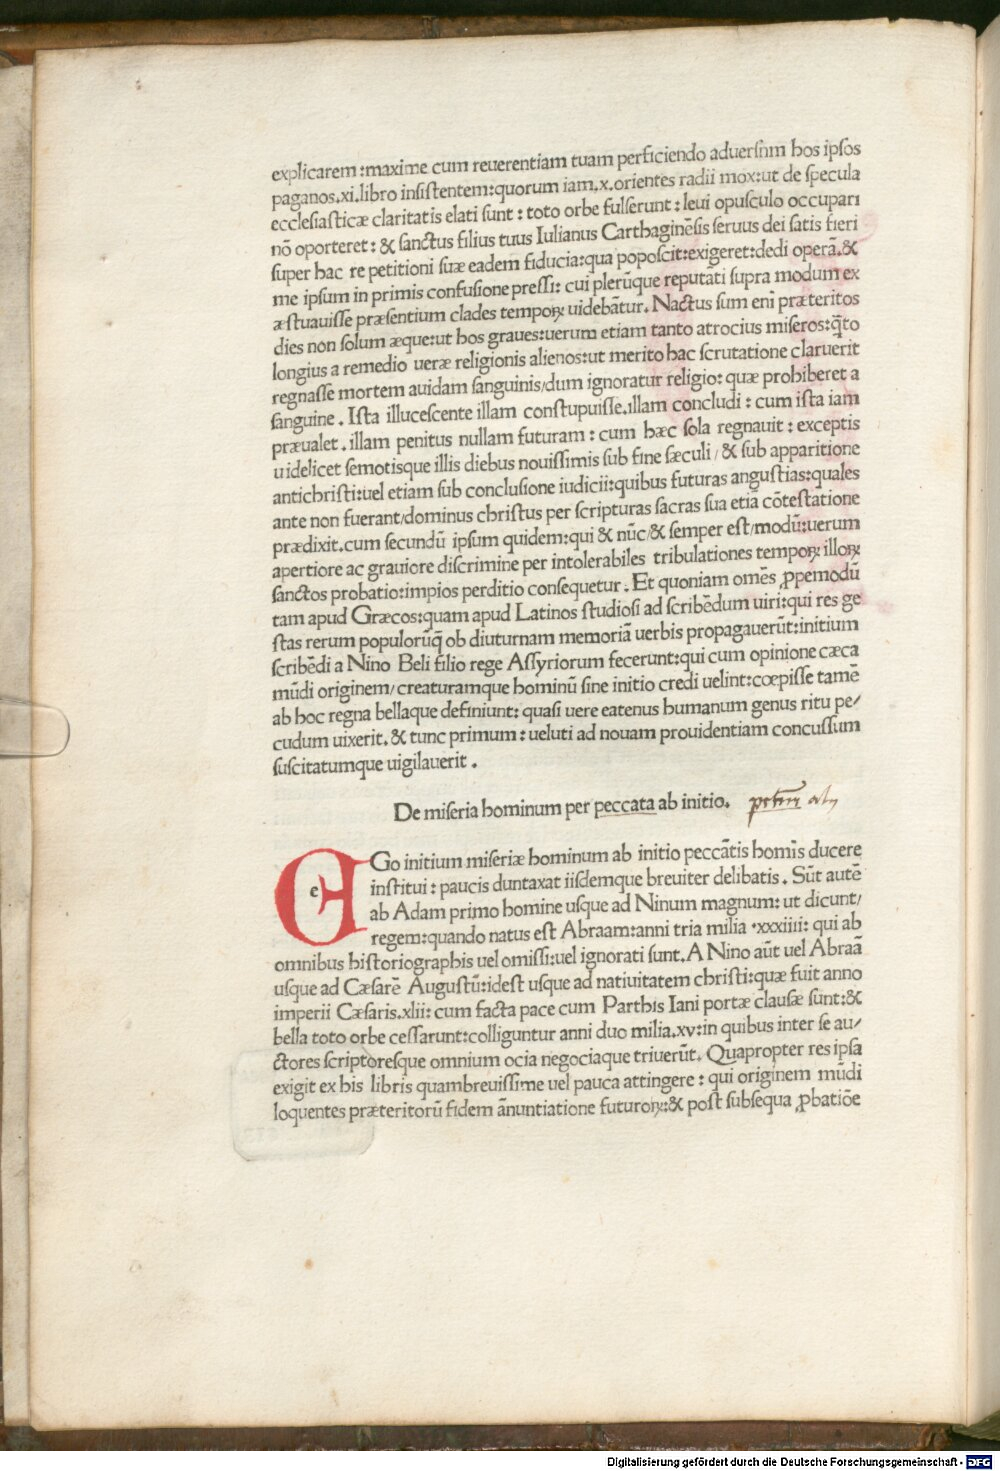 explicarem:maxime cum reuerentiam tuam perficiendo aduersum hos ipsos
paganos.xi.libro insistentem:quorum iam.x.orientes radii mox:ut de specula
ecclesiasticæ claritatis elati sunt: toto orbe fulserunt: leui opusculo occupari
nõ oporteret: & sanctus filius tuus Iulianus Carthaginẽsis seruus dei satis fieri
super hac re petitioni suæ eadem fiducia:qua poposcit:exigeret:dedi operã.&
me ipsum in primis confusione pressi: cui plerũque reputãti supra modum ex
æstuauisse præsentium clades tempoꝝ uidebãtur. Nactus sum enĩ præteritos
dies non solum æque:ut hos graues:uerum etiam tanto atrocius miseros:q̃to
longius a remedio ueræ religionis alienos:ut merito hac scrutatione claruerit
regnasse mortem auidam sanguinis/dum ignoratur religio: quæ prohiberet a
sanguine. Ista illucescente illam constupuisse.illam concludi: cum ista iam
præualet. illam penitus nullam futuram: cum hæc sola regnauit: exceptis
uidelicet semotisque illis diebus nouissimis sub fine sæculi/ & sub apparitione
antichristi:uel etiam sub conclusione iudicii:quibus futuras angustias:quales
ante non fuerant/dominus christus per scripturas sacras sua etiã cõtestatione
prædixit.cum secundũ ipsum quidem:qui & nũc/& semper est/modũ:uerum
apertiore ac grauiore discrimine per intolerabiles tribulationes tempoꝝ illoꝝ
sanctos probatio:impios perditio consequetur. Et quoniam omẽs ꝓpemodũ
tam apud Græcos:quam apud Latinos studiosi ad scribẽdum uiri:qui res ge
stas rerum populorũq̃ ob diuturnam memoriã uerbis propagauerũt:initium
scribẽdi a Nino Beli filio rege Assyriorum fecerunt:qui cum opinione cæca
mũdi originem/creaturamque hominũ sine initio credi uelint:cœpisse tamẽ
ab hoc regna bellaque definiunt: quasi uere eatenus humanum genus ritu pe/
cudum uixerit. & tunc primum: ueluti ad nouam prouidentiam concussum
suscitatumque uigilauerit.
De miseria hominum per peccata ab initio.
EGo initium miseriæ hominum ab initio peccãtis homĩs ducere
institui: paucis duntaxat iisdemque breuiter delibatis. Sũt autẽ
ab Adam primo homine usque ad Ninum magnum: ut dicunt/
regem:quando natus est Abraam:anni tria milia .xxxiiii: qui ab
omnibus historiographis uel omissi:uel ignorati sunt. A Nino aũt uel Abraã
usque ad Cæsarẽ Augustũ:idest usque ad natiuitatem christi:quæ fuit anno
imperii Cæsaris.xlii: cum facta pace cum Parthis Iani portæ clausæ sunt:&
bella toto orbe cessarunt:colliguntur anni duo milia.xv:in quibus inter se au/
ctores scriptoresque omnium ocia negociaque triuerũt. Quapropter res ipsa
exigit ex his libris quambreuissime uel pauca attingere: qui originem mũdi
loquentes præteritorũ fidem ãnuntiatione futuroꝝ:& post subsequa ꝓbatiõe
Digitalisierung gefördert durch die Deutsche Forschungsgemeinschaft - DFG